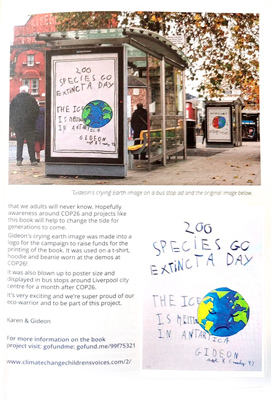 200
SPECIES GO
EXTINCT A DAY
THE ICE
IS
IN ANTARTICA
GIDEON
'Gideon's crying earth image on a bus stop ad and the original image below.
that we adults will never know. Hopefully
awareness around COP26 and projects like
this book will help to change the tide for
generations to come.
Gideon's crying earth image was made into a
logo for the campaign to raise funds for the
printing of the book. It was used on a t-shirt,
hoodie and beanie worn at the demos at
COP26!
It was also blown up to poster size and
displayed in bus stops around Liverpool city
centre for a month after COP26.
It's very exciting and we're super proud of our
eco-warrior and to be part of this project.
Karen & Gideon
For more information on the book
project visit: gofundme: gofund.me/99f75321
www.climatechangechildrensvoices.com/2/
200
SPECIES GO
EXTINCT A DAY
THE ICE
IS
IN ANTARTICA
GIDEON